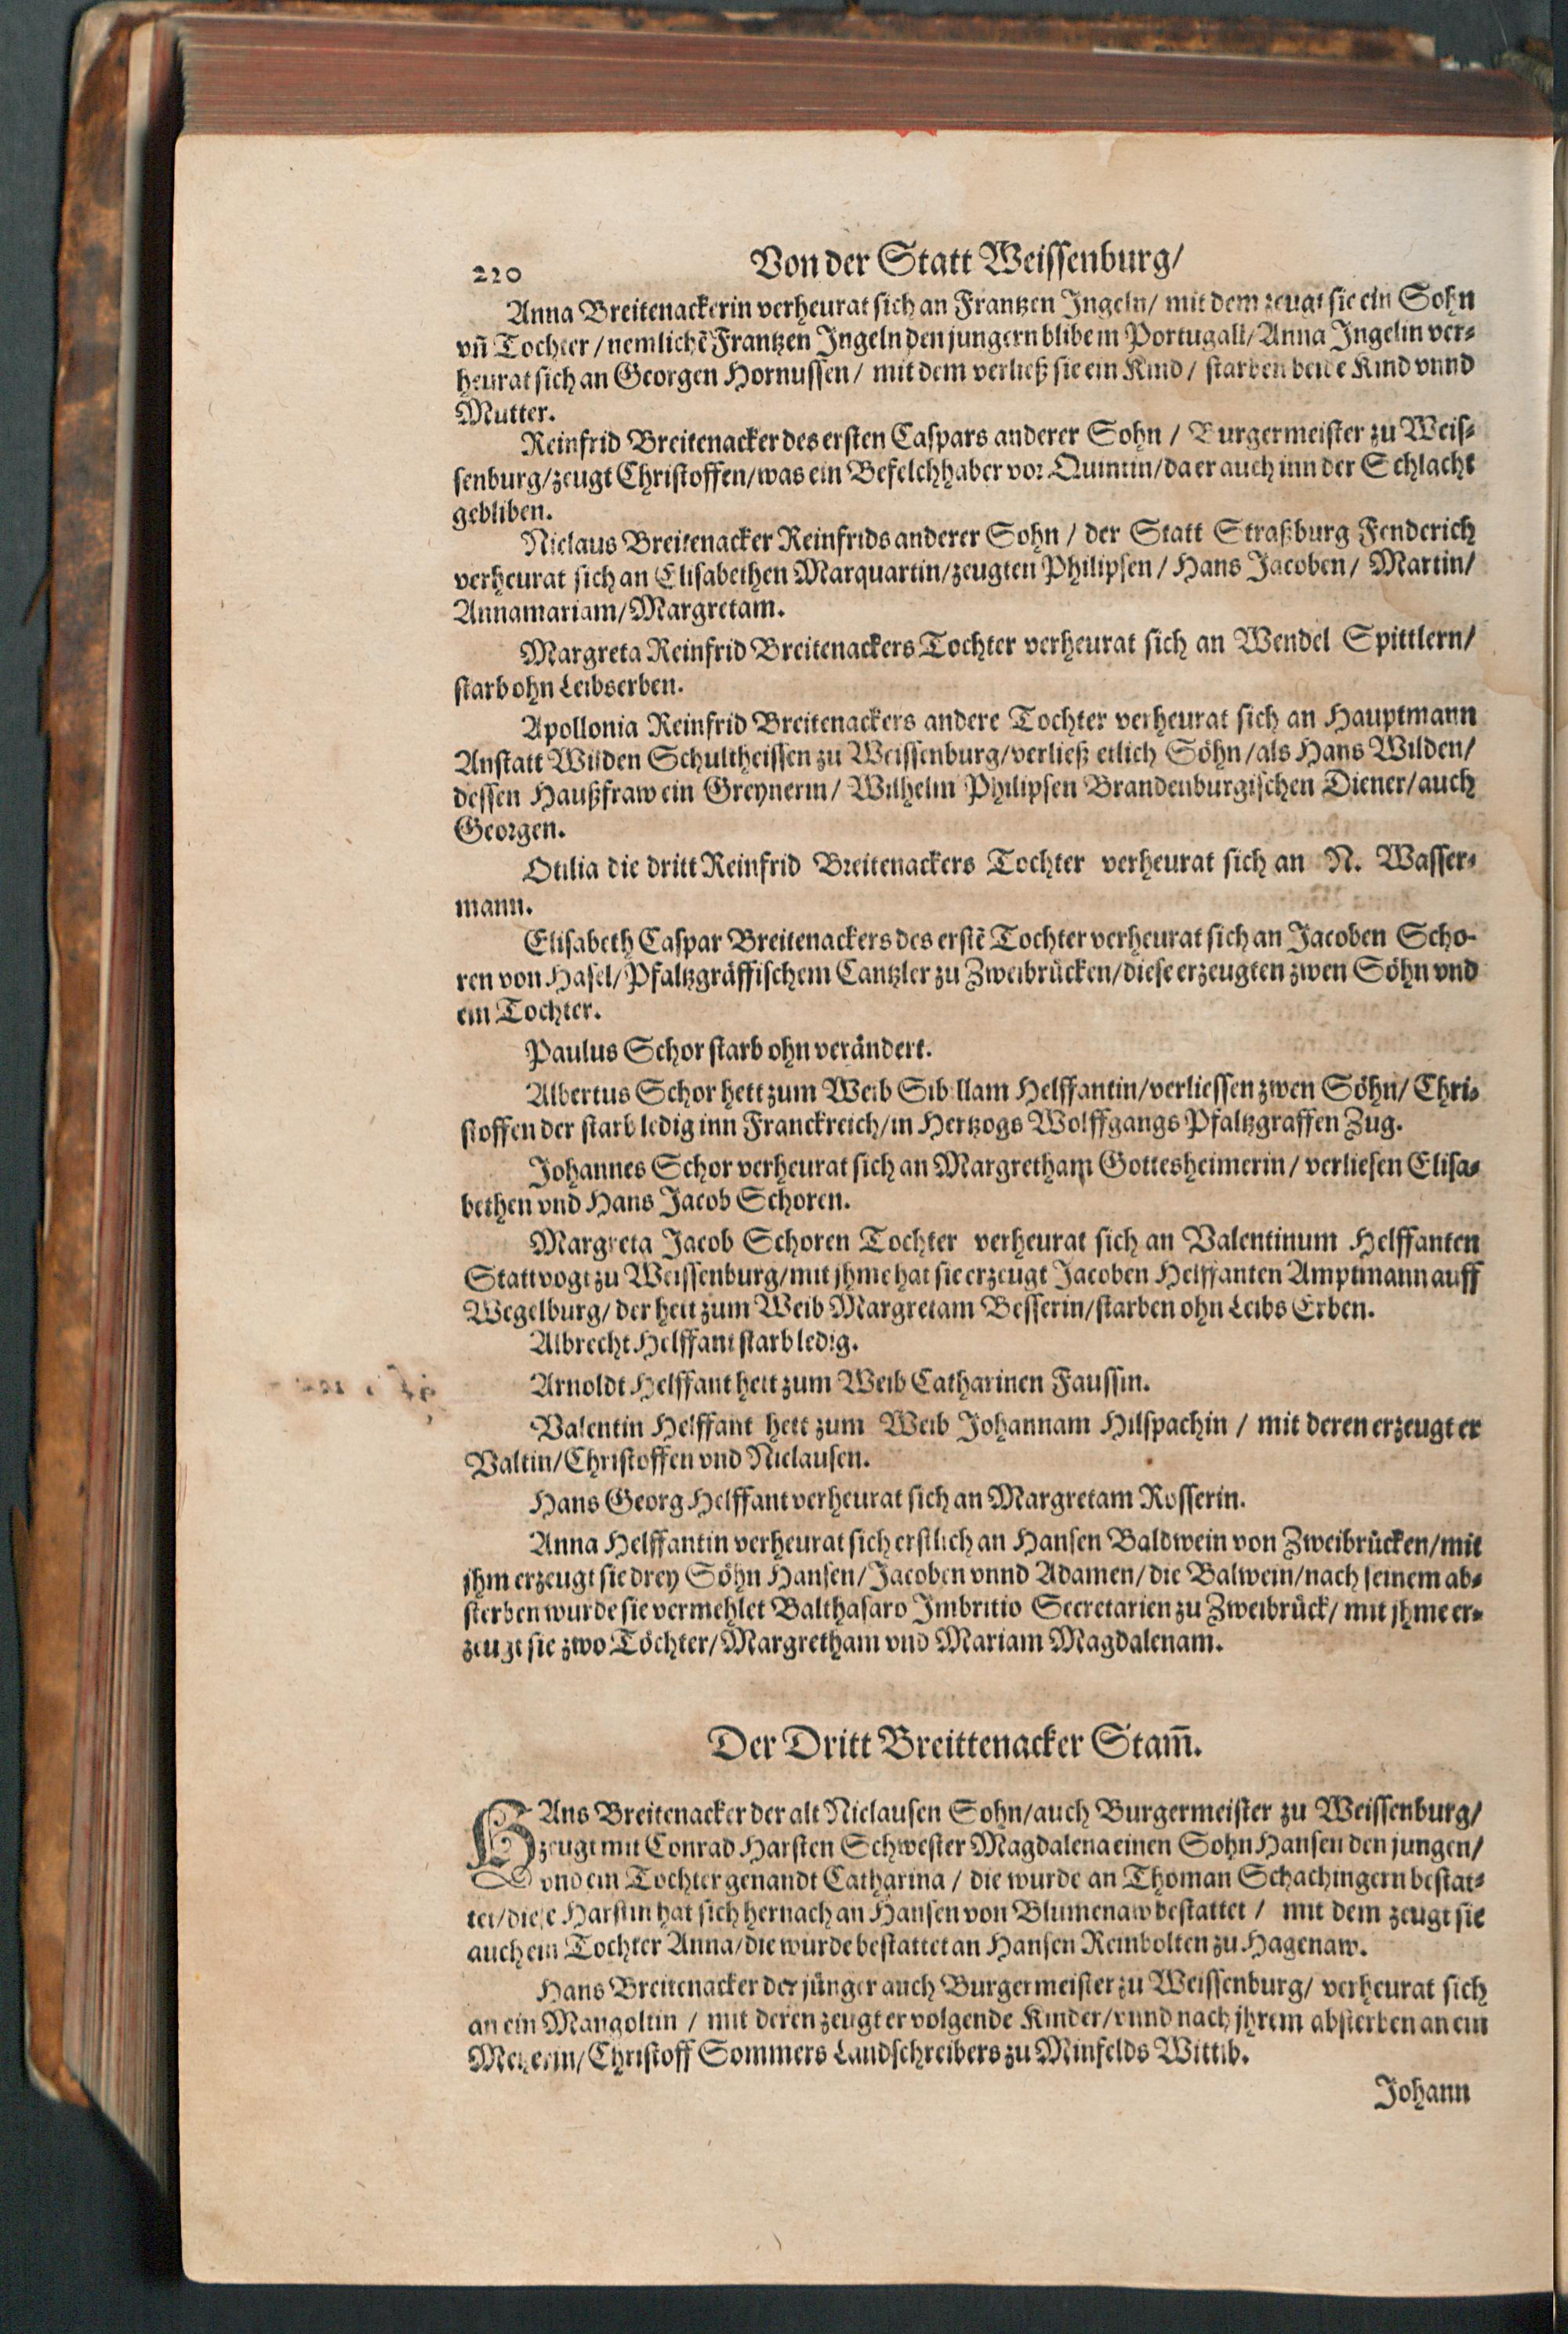 220 Von der Statt Weissenburg/
Anna Breitenackerin verheurat sich an Frantzen Ingeln/ mit dem zeugt sie ein Sohn
vñ Tochter/nemlichẽ Frantzen Ingeln den jungern blibe in Portugall/Anna Ingelin ver-
heurat sich an Georgen Hornussen/ mit dem verließ sie ein Kind/ starben beide Kind vnnd
Mutter.
Reinfrid Breitenacker des ersten Caspars anderer Sohn / Burgermeister zu Weis-
senburg/zeugt Christoffen/was ein Befelchhaber vor Quintin/da er auch inn der Schlacht
gebliben.
Niclaus Breitenacker Reinfrids anderer Sohn / der Statt Straßburg Fenderich
verheurat sich an Elisabethen Marquartin/zeugten Philipsen/ Hans Jacoben/ Martin/
Annamariam/Margretam.
Margreta Reinfrid Breitenackers Tochter verheurat sich an Wendel Spittlern/
starb ohn Leibserben.
Apollonia Reinfrid Breitenackers andere Tochter verheurat sich an Hauptmann
Anstatt Wilden Schultheissen zu Weissenburg/verließ etlich Söhn/als Hans Wilden/
dessen Haußfraw ein Greynerin/ Wilhelm Philipsen Brandenburgischen Diener/auch
Georgen.
Otilia die dritt Reinfrid Breitenackers Tochter verheurat sich an N. Wasser-
mann.
Elisabeth Caspar Breitenackers des erstẽ Tochter verheurat sich an Jacoben Scho-
ren von Hasel/Pfaltzgräffischem Cantzler zu Zweibrücken/diese erzeugten zwen Söhn vnd
ein Tochter.
Paulus Schor starb ohn verändert.
Albertus Schor hett zum Weib Sibillam Helffantin/verliessen zwen Söhn/ Chri-
stoffen der starb ledig inn Franckreich/in Hertzogs Wolffgangs Pfaltzgraffen Zug.
Johannes Schor verheurat sich an Margretham Gottesheimerin/ verliesen Elisa-
bethen vnd Hans Jacob Schoren.
Margreta Jacob Schoren Tochter verheurat sich an Valentinum Helffanten
Stattvogt zu Weissenburg/mit jhme hat sie erzeugt Jacoben Helffanten Amptmann auff
Wegelburg/ der hett zum Weib Margretam Besserin/starben ohn Leibs Erben.
Albrecht Helffant starb ledig.
Arnoldt Helffant hett zum Weib Catharinen Faussin.
Valentin Helffant hett zum Weib Johannam Hilspachin / mit deren erzeugt er
Valtin/Christoffen vnd Niclausen.
Hans Georg Helffant verheurat sich an Margretam Rosserin.
Anna Helffantin verheurat sich erstlich an Hansen Baldwein von Zweibrücken/mit
jhm erzeugt sie drey Söhn Hansen/Jacoben vnnd Adamen/die Balwein/nach seinem ab-
sterben wurde sie vermehlet Balthasaro Imbritio Secretarien zu Zweibrück/ mit jhme er-
zeugt sie zwo Töchter/Margretham vnd Mariam Magdalenam.
Der Dritt Breittenacker Stam̃.
HAns Breitenacker der alt Niclausen Sohn/auch Burgermeister zu Weissenburg/
zeugt mit Conrad Harsten Schwester Magdalena einen Sohn Hansen den jungen/
vnd ein Tochter genandt Catharina/ die wurde an Thoman Schachingern bestat-
tet/diese Harstin hat sich hernach an Hansen von Blumenaw bestattet/ mit dem zeugt sie
auch ein Tochter Anna/die wurde bestattet an Hansen Reinbolten zu Hagenaw.
Hans Breitenacker der jünger auch Burgermeister zu Weissenburg/ verheurat sich
an ein Mangoltin / mit deren zeugt er volgende Kinder/vnnd nach jhrem absterben an ein
Christoff Sommers Landschreibers zu Minfelds Wittib.
Johann